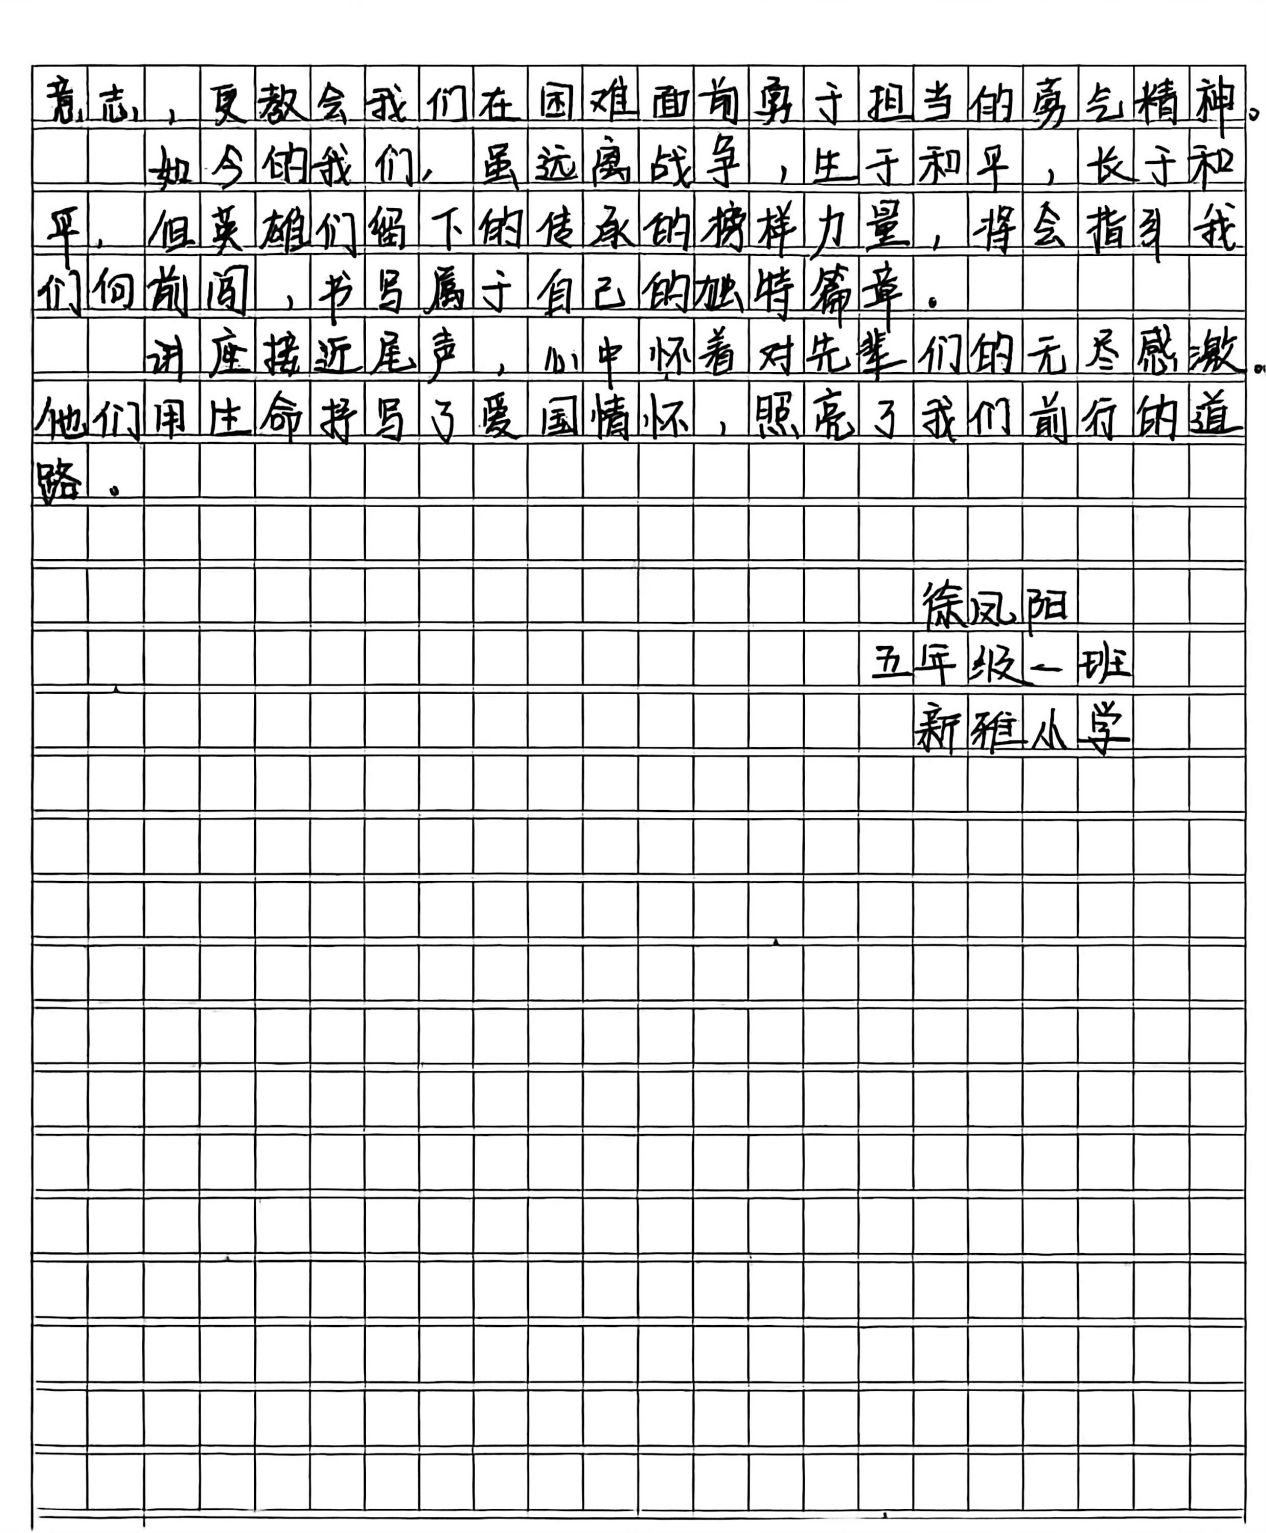 意志，更教会我们在困难面前勇于担当的勇气精神。
如今的我们，虽远离战争，生于和平，长于和
平，但英雄们留下的传承的榜样力量，将会指引我
们向前闯，书写属于自己的独特篇章。
讲座接近尾声，心中怀着对先辈们的无尽感激。
他们用生命抒写了爱国情怀，照亮了我们前行的道
路。
徐凤阳
五年级一班
新雅小学